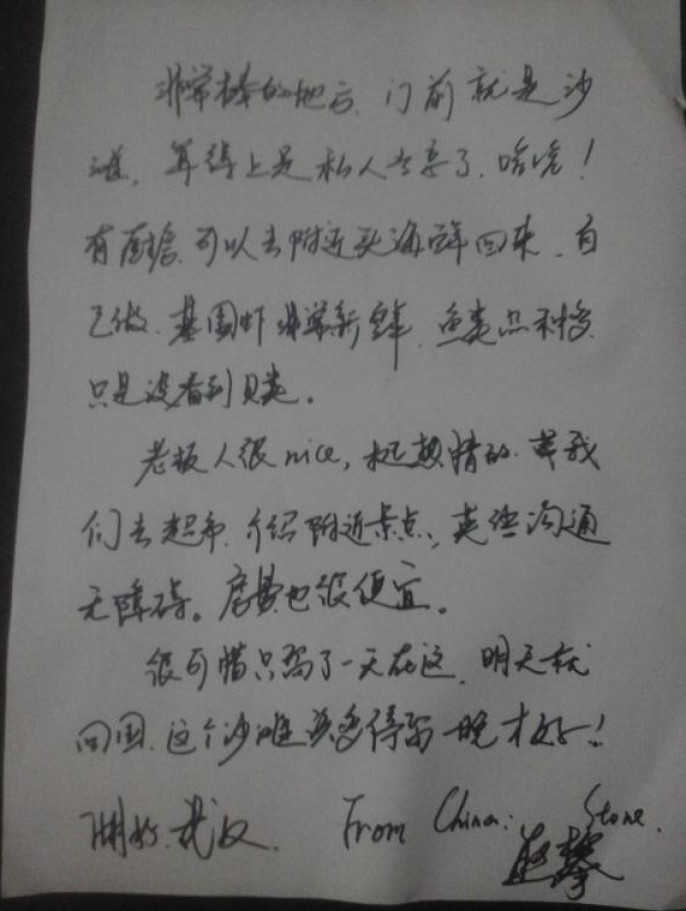 非常棒的地方、门前就是沙
滩，算得上是私人专享了、哈哈！
有厨房、可以去附近买海鲜回来、自
己做、基围虾非常新鲜、鱼类品种多、
只是没看到贝类。
老板人很nice，挺热情的、带我
们去超市、介绍附近景点、英语沟通
无障碍。房费也很便宜。
很可惜只留了一天在这、明天就
回国、这个沙滩要多待一晚才好！
武汉、From China: Stone.